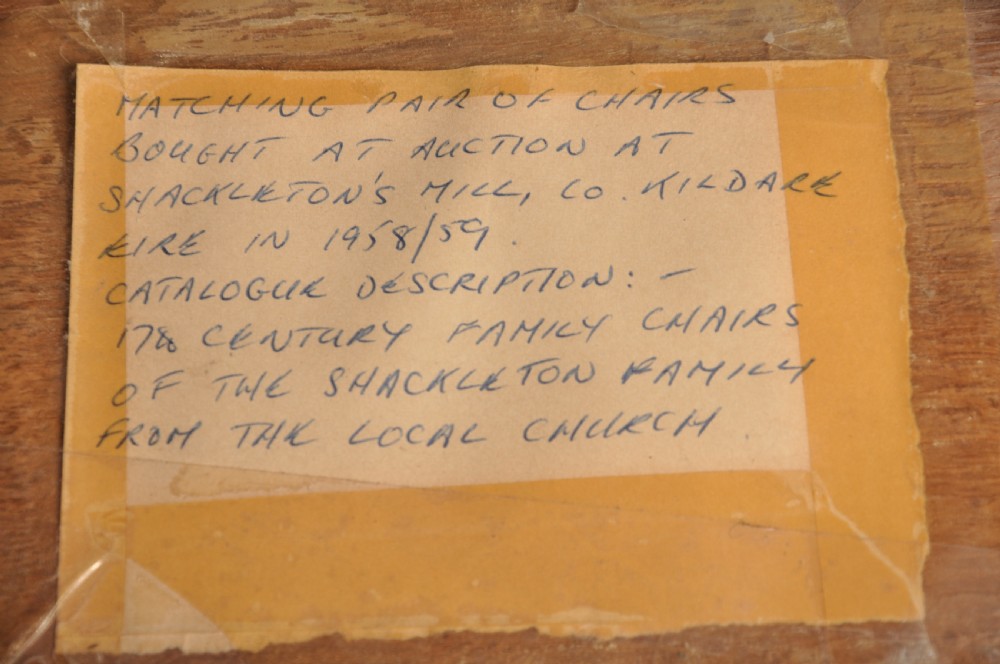 MATCHING PAIR OF CHAIRS
BOUGHT AT AUCTION AT
SHACKLETON'S MILL, CO. KILDARE
EIRE IN 1958/59.
CATALOGUE DESCRIPTION: -
17th CENTURY FAMILY CHAIRS
OF THE SHACKLETON FAMILY
FROM THE LOCAL CHURCH